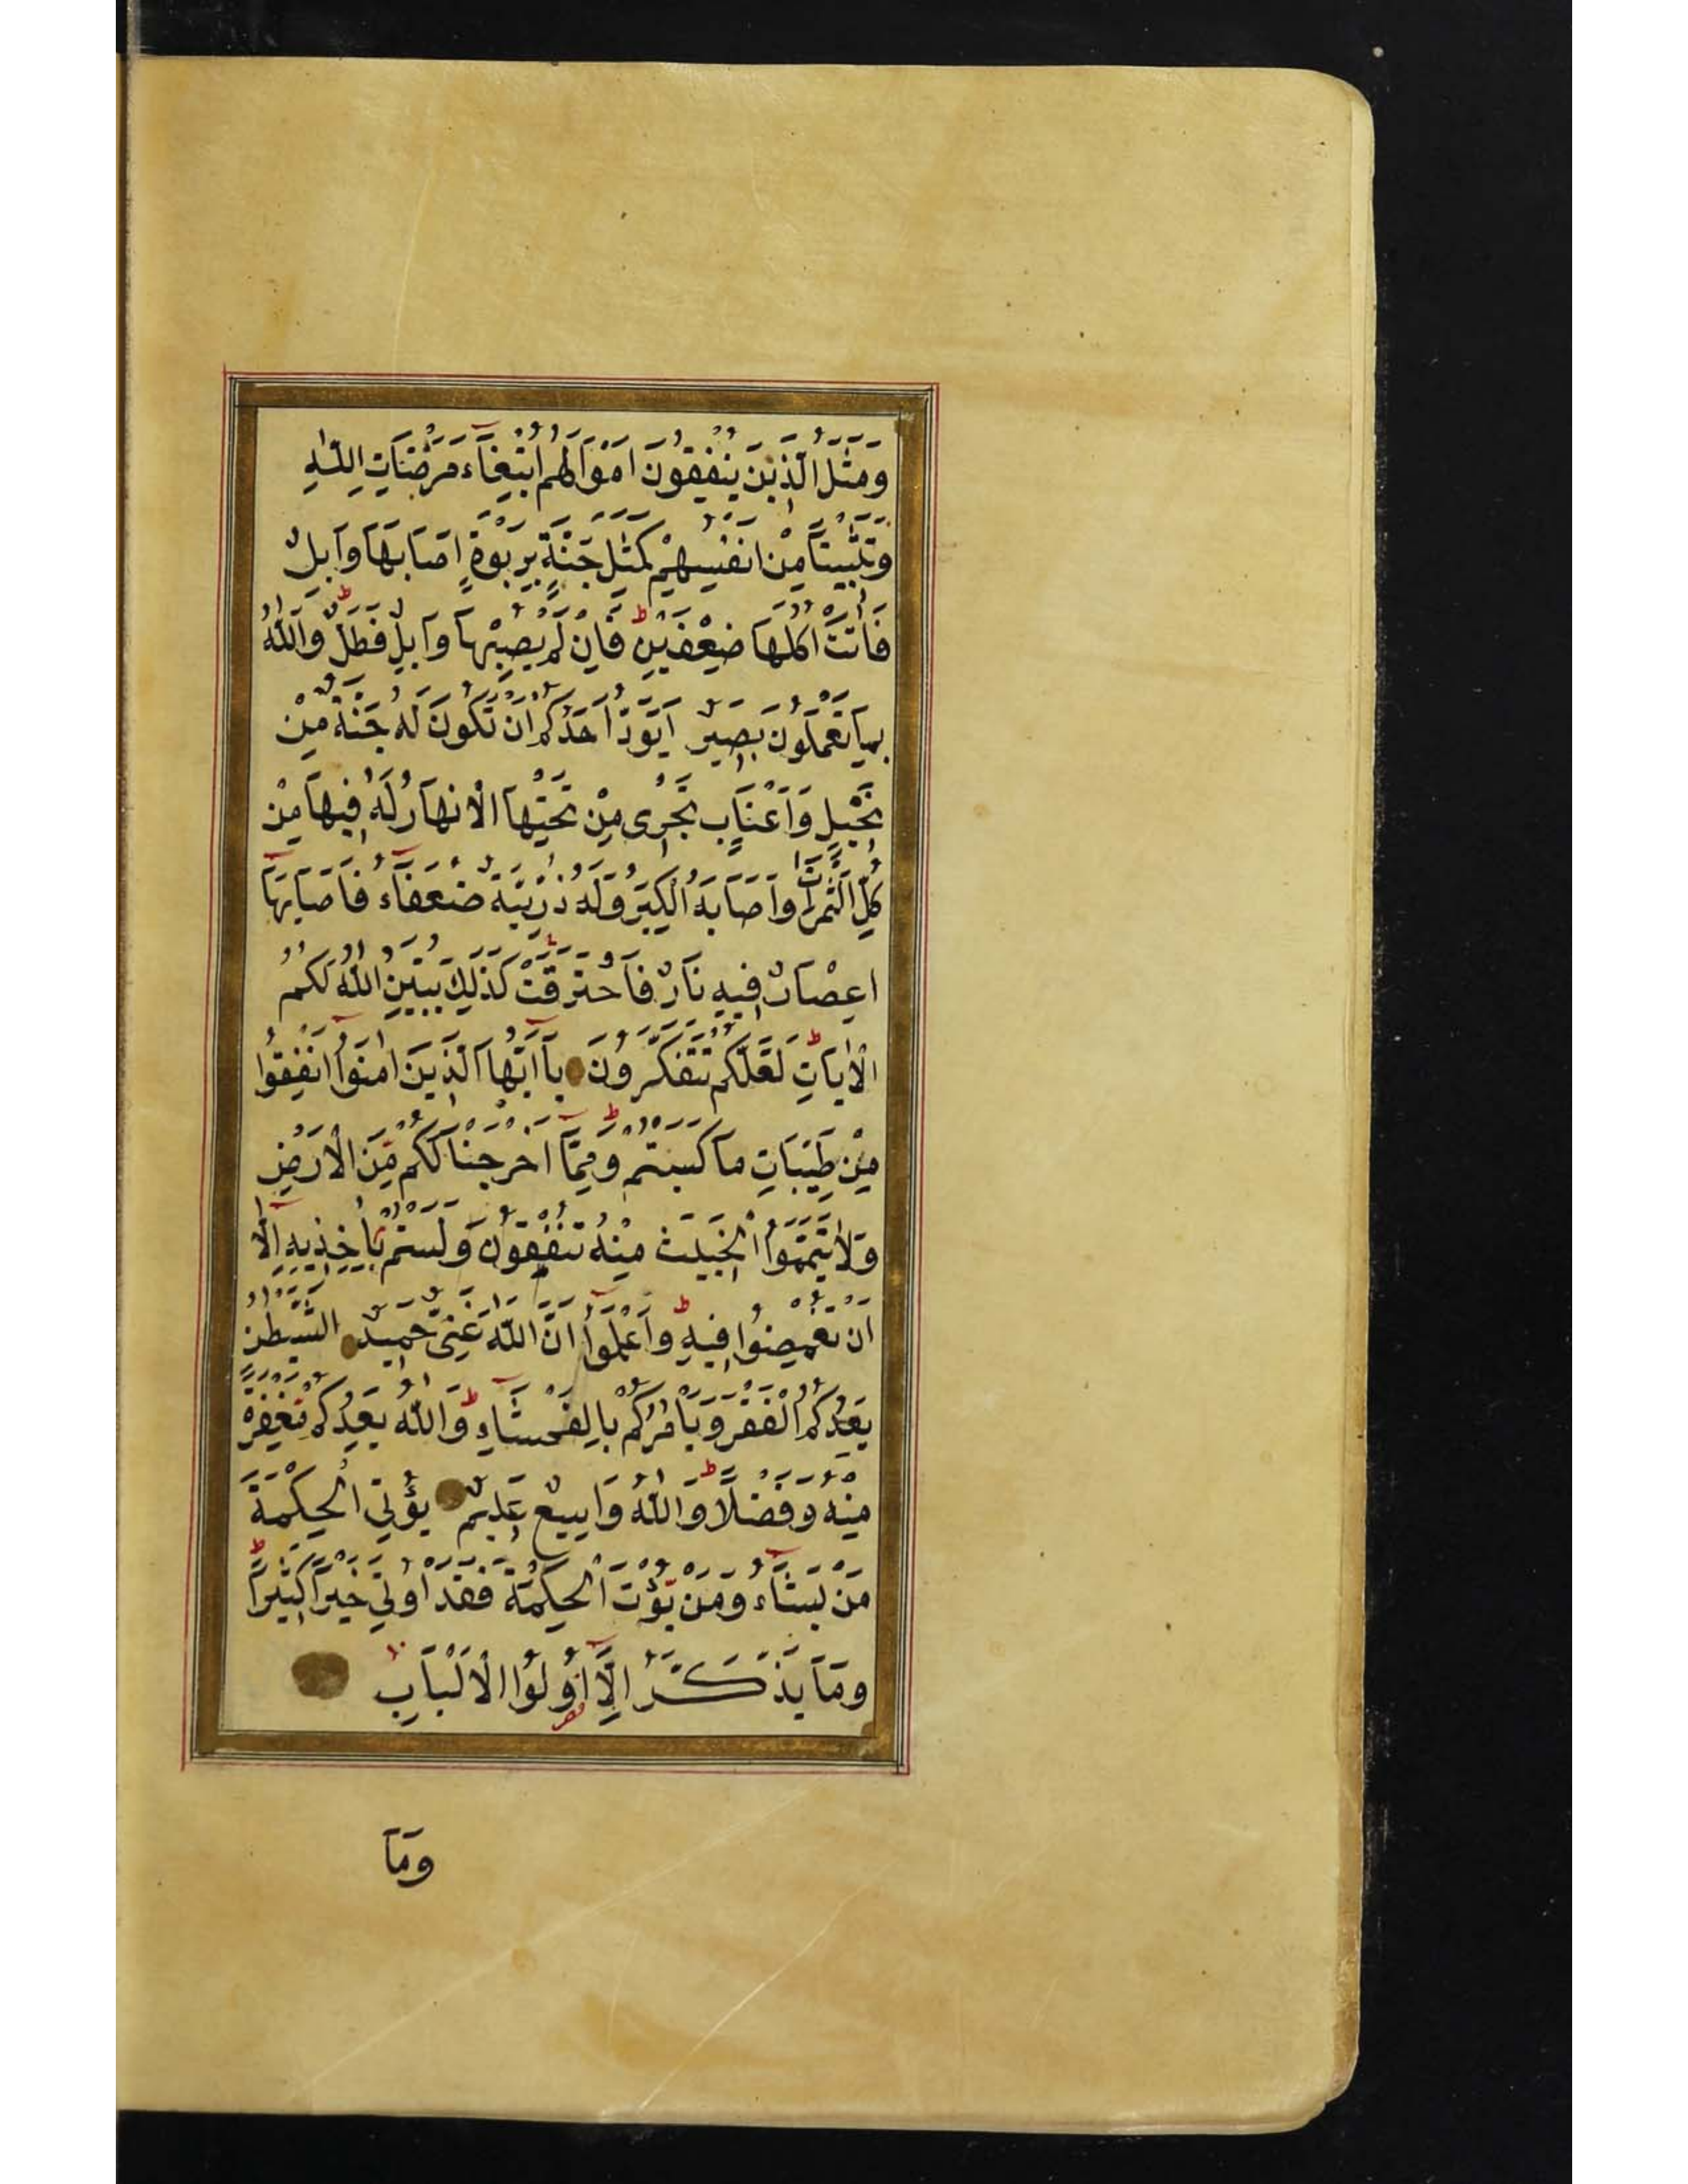 وَمَثَلُ الَّذِينَ يُنْفِقُونَ اَمْوَالَهُمُ ابْتِغَآءَ مَرْضَاتِ اللّٰهِ
وَتَثْبِيتًا مِنْ اَنْفُسِهِمْ كَمَثَلِ جَنَّةٍ بِرَبْوَةٍ اَصَابَهَا وَابِلٌ
فَاٰتَتْ اُكُلَهَا ضِعْفَيْنِ ط فَاِنْ لَمْ يُصِبْهَا وَابِلٌ فَطَلٌّ ط وَاللّٰهُ
بِمَا تَعْمَلُونَ بَصِيرٌ اَيَوَدُّ اَحَدُكُمْ اَنْ تَكُونَ لَهُ جَنَّةٌ مِنْ
نَخِيلٍ وَاَعْنَابٍ تَجْرِى مِنْ تَحْتِهَا الْاَنْهَارُ لَهُ فِيهَا مِنْ
كُلِّ الثَّمَرَاتِ وَاَصَابَهُ الْكِبَرُ وَلَهُ ذُرِّيَّةٌ ضُعَفَآءُ فَاَصَابَهَآ
اِعْصَارٌ فِيهِ نَارٌ فَاحْتَرَقَتْ ط كَذٰلِكَ يُبَيِّنُ اللّٰهُ لَكُمُ
الْاٰيَاتِ لَعَلَّكُمْ تَتَفَكَّرُونَ يَآ اَيُّهَا الَّذِينَ اٰمَنُوٓا اَنْفِقُوا
مِنْ طَيِّبَاتِ مَا كَسَبْتُمْ وَمِمَّآ اَخْرَجْنَا لَكُمْ مِنَ الْاَرْضِ
وَلَا تَيَمَّمُوا الْخَبِيثَ مِنْهُ تُنْفِقُونَ وَلَسْتُمْ بِاٰخِذِيهِ اِلَّآ
اَنْ تُغْمِضُوا فِيهِ ط وَاعْلَمُوٓا اَنَّ اللّٰهَ غَنِىٌّ حَمِيدٌ الشَّيْطٰنُ
يَعِدُكُمُ الْفَقْرَ وَيَاْمُرُكُمْ بِالْفَحْشَآءِ ط وَاللّٰهُ يَعِدُكُمْ مَغْفِرَةً
مِنْهُ وَفَضْلًا ط وَاللّٰهُ وَاسِعٌ عَلِيمٌ يُؤْتِى الْحِكْمَةَ
مَنْ يَشَآءُ وَمَنْ يُؤْتَ الْحِكْمَةَ فَقَدْ اُوتِىَ خَيْرًا كَثِيرًا ط
وَمَا يَذَّكَّرُ اِلَّآ اُولُوا الْاَلْبَابِ
وَمَا